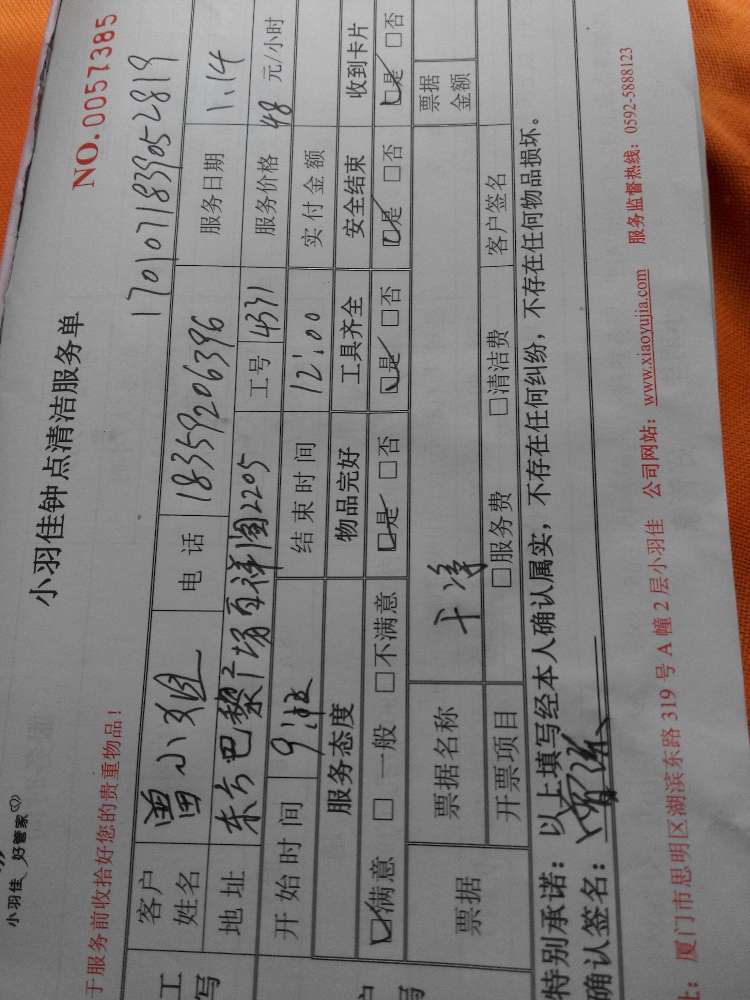 小羽佳 好管家
小羽佳钟点清洁服务单
NO.0057385
于服务前收拾好您的贵重物品！
17010718390528​19
客户姓名 曾小姐 电话 18359206396 服务日期 1.14
地址 东方巴黎广场百祥阁2205 工号 4331 服务价格 48 元/小时
开始时间 9:00 结束时间 12:00 实付金额
服务态度 物品完好 工具齐全 安全结束 收到卡片
☑满意 □一般 □不满意 ☑是 □否 ☑是 □否 ☑是 □否 ☑是 □否
票据 票据名称 干净 票据金额
开票项目 □服务费 □清洁费 客户签名
特别承诺：以上填写经本人确认属实，不存在任何纠纷，不存在任何物品损坏。
确认签名：
厦门市思明区湖滨东路 319 号 A 幢 2 层小羽佳 公司网站：www.xiaoyujia.com 服务监督热线：0592-5888123